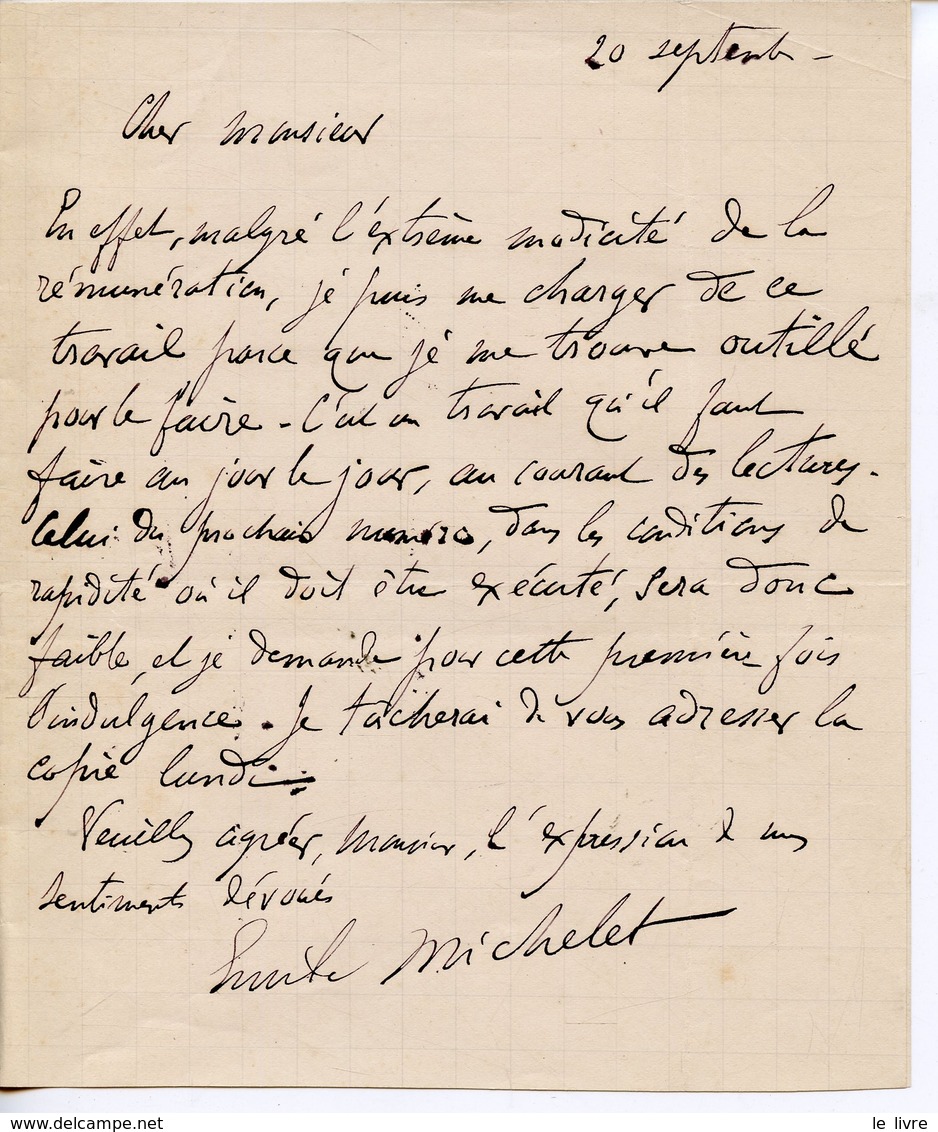 20 septembre
Cher monsieur
En effet, malgré l'extrême modicité de la
rémunération, je puis me charger de ce
travail parce que je me trouve outillé
pour le faire - C'est un travail qu'il faut
faire au jour le jour, au courant des lectures -
Celui du prochain numéro, dans les conditions de
rapidité où il doit être exécuté, sera donc
faible, et je demande pour cette première fois
l'indulgence. Je tâcherai de vous adresser la
copie lundi.
Veuillez agréer, monsieur, l'expression de mes
sentiments dévoués
Emile Michelet
le livre